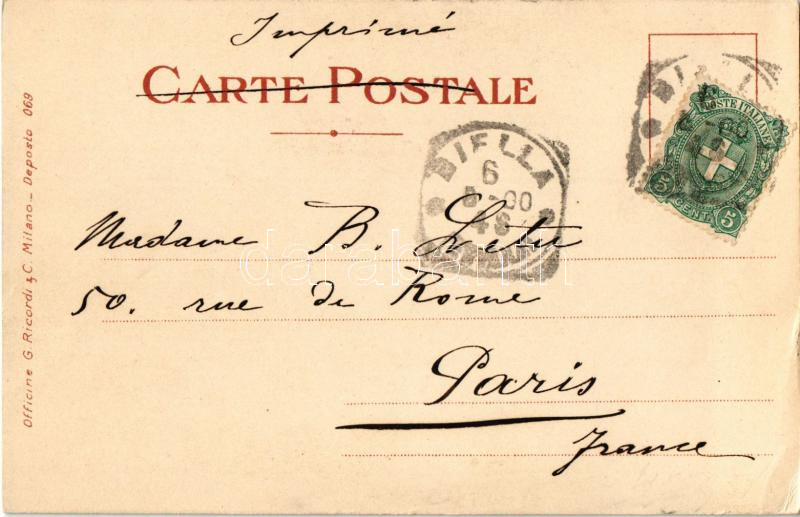 Imprimé
CARTE POSTALE
BIELLA
6
00
BIELLA
POSTE ITALIANE
5 CENT. 5
Madame B.
50. rue de Rome
Paris
France
Officine G. Ricordi & C. Milano - Deposto 069
darabanth